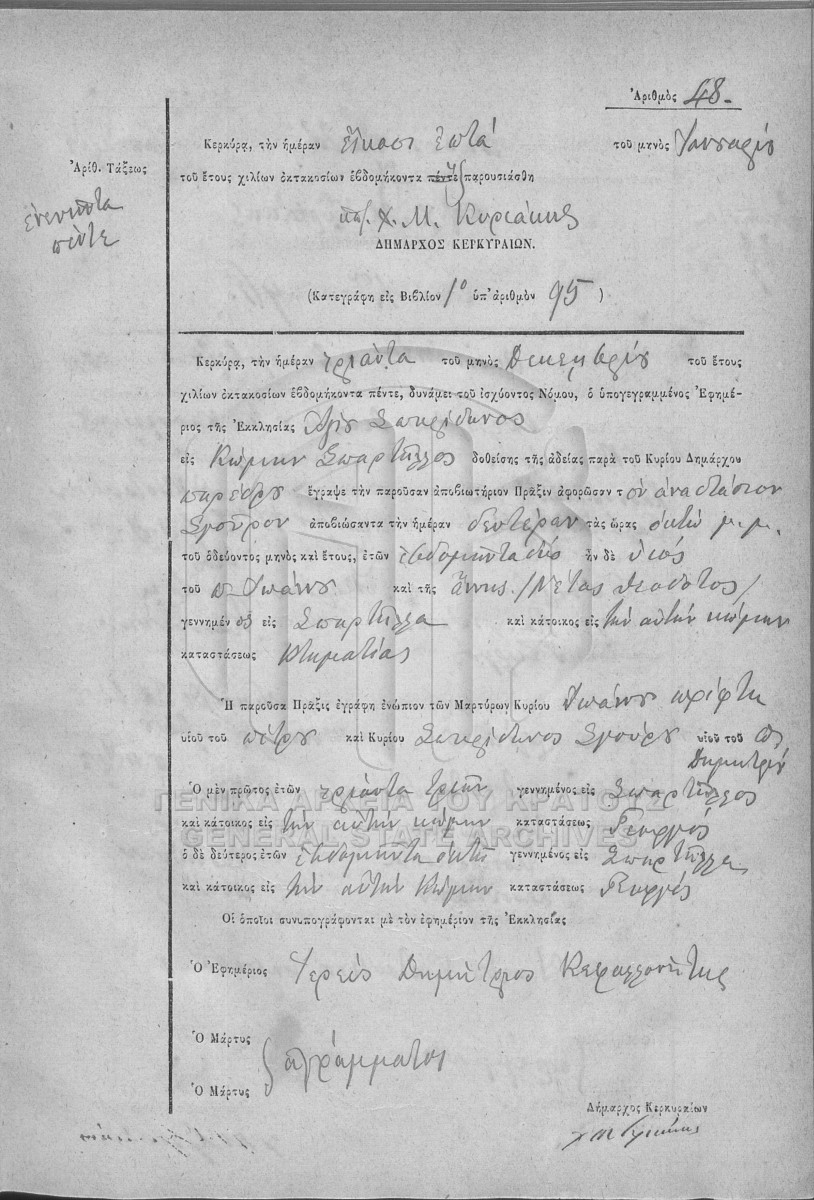 Ἀριθμὸς 48.
Κερκύρᾳ, τὴν ἡμέραν εἴκοσι ἑπτά τοῦ μηνὸς Ἰανουαρίου
Ἀριθ. Τάξεως
τοῦ ἔτους χιλίων ὀκτακοσίων ἑβδομήκοντα πέντε ἕξ παρουσιάσθη
ἐνενῆντα
πέντε
Χ. Μ. Κυριάκης
ΔΗΜΑΡΧΟΣ ΚΕΡΚΥΡΑΙΩΝ.
(Κατεγράφη εἰς Βιβλίον 1ο ὑπ' ἀριθμὸν 95)
Κερκύρᾳ, τὴν ἡμέραν τριάντα τοῦ μηνὸς Δεκεμβρίου τοῦ ἔτους
χιλίων ὀκτακοσίων ἑβδομήκοντα πέντε, δυνάμει τοῦ ἰσχύοντος Νόμου, ὁ ὑπογεγραμμένος Ἐφημέ-
ριος τῆς Ἐκκλησίας Ἁγίου Σπυρίδωνος
εἰς Κώμην Σπαρτύλλος δοθείσης τῆς ἀδείας παρὰ τοῦ Κυρίου Δημάρχου
παρέδρου ἔγραψε τὴν παροῦσαν ἀποβιωτήριον Πρᾶξιν ἀφορῶσαν τὸν ἀναστάσιον
Σγοῦρον ἀποβιώσαντα τὴν ἡμέραν δευτέραν τὰς ὥρας ὀκτώ μ.μ.
τοῦ ὁδεύοντος μηνὸς καὶ ἔτους, ἐτῶν ἑβδομῆντα δύο ἦν δὲ υἱός
τοῦ π. Ἰωάννου καὶ τῆς ἄννης /Νέτας Θεοδότος/
γεννημένος εἰς Σπαρτύλλα καὶ κάτοικος εἰς τὴν αὐτήν κώμην
καταστάσεως κτηματίας
Ἡ παροῦσα Πρᾶξις ἐγράφη ἐνώπιον τῶν Μαρτύρων Κυρίου Ἰωάννου πρίφτη
υἱοῦ τοῦ πέτρου καὶ Κυρίου Σπυρίδωνος Σγούρου υἱοῦ τοῦ π.
Δημητρίου
Ὁ μὲν πρῶτος ἐτῶν τριάντα τριῶν γεννημένος εἰς Σπαρτύλλος
καὶ κάτοικος εἰς τὴν αὐτήν κώμην καταστάσεως Γεωργός
ὁ δὲ δεύτερος ἐτῶν ἑβδομῆντα ὀκτώ γεννημένος εἰς Σπαρτύλλα
καὶ κάτοικος εἰς τὴν αὐτήν κώμην καταστάσεως Γεωργός
Οἱ ὁποῖοι συνυπογράφονται μὲ τὸν ἐφημέριον τῆς Ἐκκλησίας
Ὁ Ἐφημέριος Ἱερεύς Δημήτριος Κεφαλλονήτης
Ὁ Μάρτυς
ἀγράμματοι
Ὁ Μάρτυς
Δήμαρχος Κερκυραίων
Χ Μ Κυριάκης
ΓΕΝΙΚΑ ΑΡΧΕΙΑ ΤΟΥ ΚΡΑΤΟΥΣ
GENERAL STATE ARCHIVES